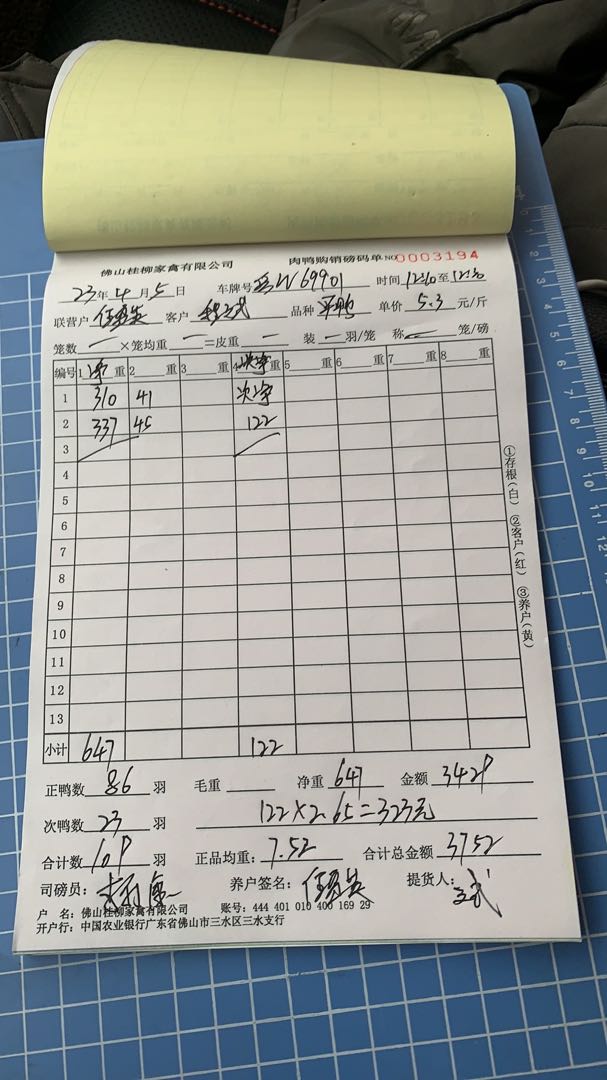 佛山桂柳家禽有限公司 肉鸭购销磅码单 NO 0003194
23年4月5日 车牌号 W69901 时间 1210至1230
联营户 客户 品种 单价 5.3 元/斤
笼数 — ×笼均重 — =皮重 — 装 — 羽/笼 称 — 笼/磅
编号 1净重 2 重 3 重 4次净重 5 重 6 重 7 重 8 重
1 310 41 次净
2 337 45 122
3
4
5
6
7
8
9
10
11
12
13
小计 647 122
①存根(白) ②客户(红) ③养户(黄)
正鸭数 86 羽 毛重 净重 647 金额 3429
次鸭数 23 羽 122×2.65=323元
合计数 109 羽 正品均重: 7.52 合计总金额 3752
司磅员: 养户签名: 提货人:
户 名: 佛山桂柳家禽有限公司 账号: 444 401 010 400 169 29
开户行: 中国农业银行广东省佛山市三水区三水支行